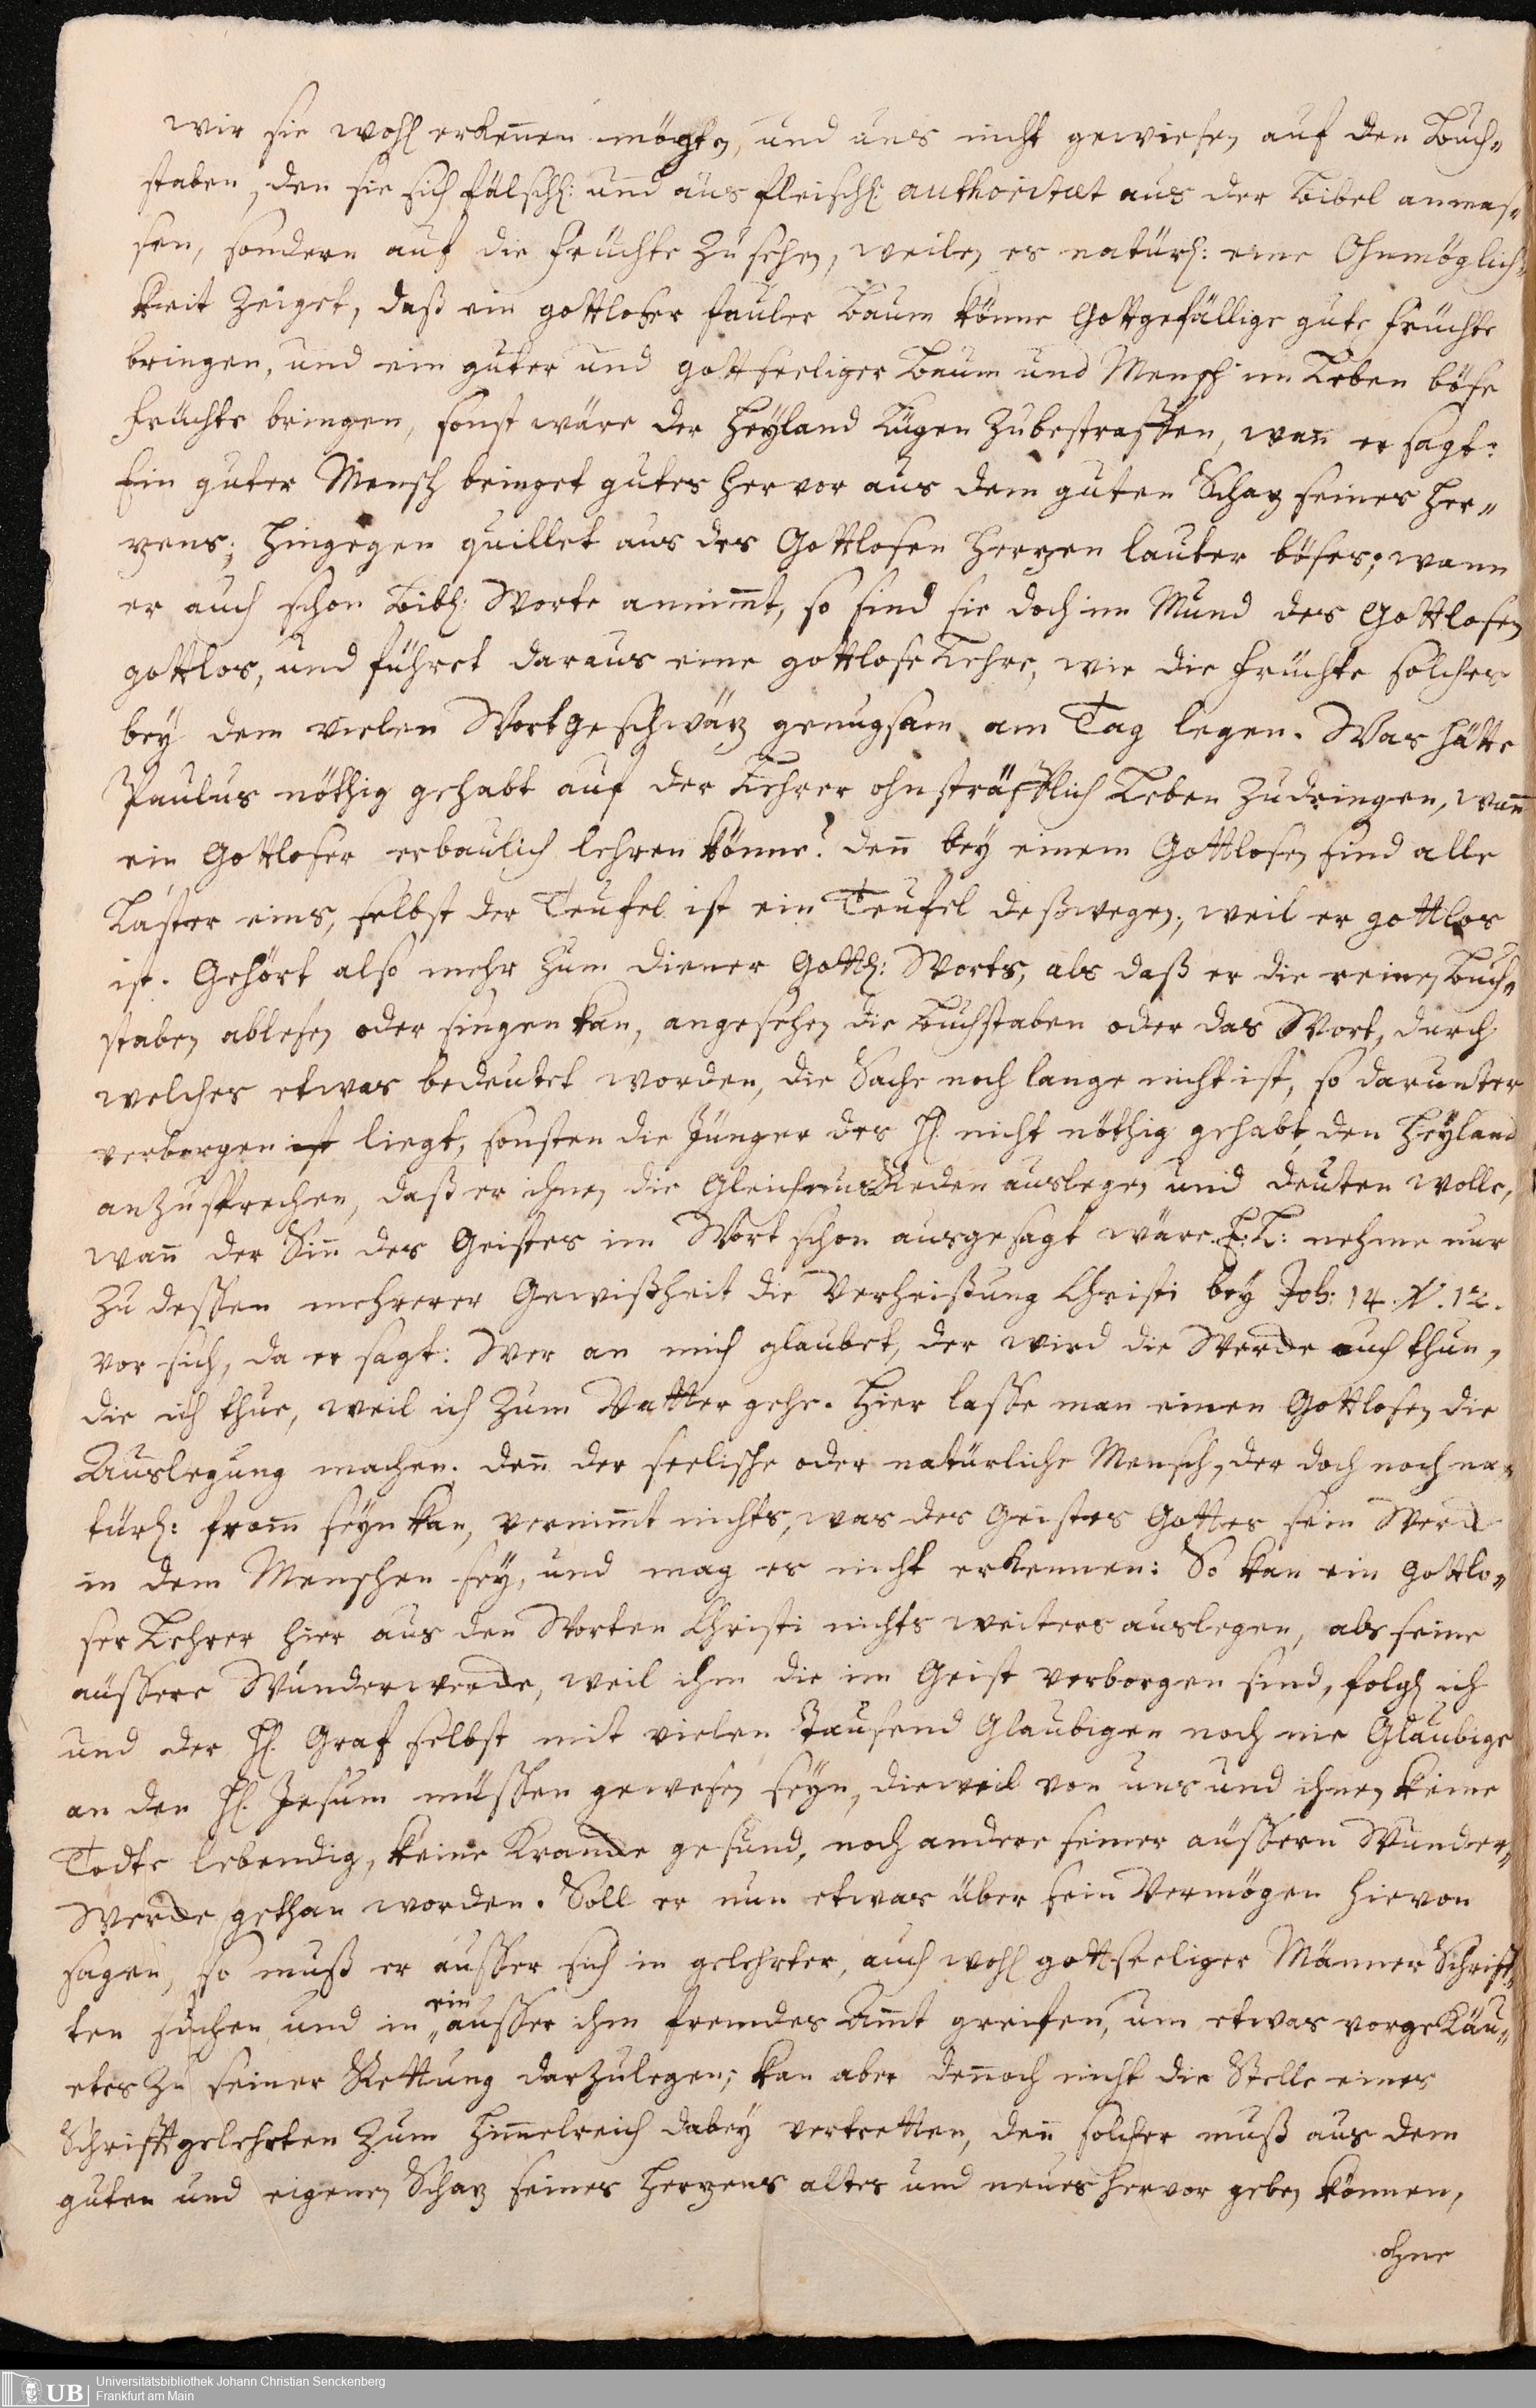 wir sie wohl erkenen mögt, und uns nicht gewiesen auf den Buch„
staben, den sie sich fälschl: und aus fleischl: authoritæt aus der Bibel anmas„
sen, sondern auf die früchte zu sehen, weilen es natürl: eine Ohnmöglich„
keit zeiget, daß ein gottloser fauler Baum könne Gottgefällige gute früchte
bringen, und ein guter und gottseeliger Baum und Mensch im Leben böse
früchte bringen, sonst wäre der Heyland Lügen zubestraffen, wan er sagt:
Ein guter Mensch bringet gutes hervor aus dem guten Schaz seines Her„
zens; hingegen quillet aus des Gottlosen Herzen lauter böses; wann
er auch schon Bibl: Worte annimt, so sind sie doch im Mund des Gottlosen
gottlos, und führet daraus eine gottlose Lehre, wie die früchte solches
bey dem vielen Wortgeschwäz genugsam am Tag legen. Was hätte
Paulus nöthig gehabt auf der Lehrer ohnsträfflich Leben zudringen, wan
ein Gottloser erbaulich lehren könne? den bey einem Gottlosen sind alle
Laster eins, selbst der Teufel ist ein Teufel deßwegen, weil er gottlos
ist. Gehört also mehr zum diener Göttl: Worts, als daß er die reinen Buch„
staben ablesen oder singen kan, angesehen die Buchstaben oder das Wort, durch
welches etwas bedeutet worden, die Sache noch lange nicht ist, so darunter
verborgen ist liegt, sonsten die Jünger des H. nicht nöthig gehabt, den Heyland
anzusprechen, daß er ihnen die Gleichnus Reden auslegen und deuten wolle,
wan der Sin des Geistes im Wort schon ausgesagt wäre. E: L: nehme nur
zu dessen mehrerer Gewißheit die Verheissung Christi bey Joh: 14. V. 12.
vor sich, da er sagt: Wer an mich glaubet, der wird die Werke auch thun,
die ich thue, weil ich zum Vatter gehe. Hier lasse man einen Gottlosen die
Auslegung machen. den der seelische oder natürliche Mensch, der doch noch na„
türl: from seyn kan, vernimt nichts, was des Geistes Gottes sein Werck
in dem Menschen sey, und mag es nicht erkennen: So kan ein gottlo„
ser Lehrer hier aus den Worten Christi nichts weiters auslegen, als seine
äussere Wunderwercke, weil ihm die im Geist verborgen sind, folgl ich
und der H. Graf selbst mit vielen Tausend Glaubigen noch nie Glaubige
an den H. Jesum müssen gewesen seyn, dieweil von uns und ihnen keine
Todte lebendig, keine Krancke gesund, noch andere seiner äussern Wunder„
Wercke gethan worden. Soll er nun etwas über sein Vermögen hievon
sagen, so muß er ausser sich in gelehrter, auch wohl gottseeliger Männer Schrif„
ten suchen und in ein ausser ihm fremdes Amt greifen, um etwas vorgekäu„
etes zu seiner Rettung darzulegen; kan aber denoch nicht die Stelle eines
Schrifftgelehrten zum Himelreich dabey vertretten, den solcher muß aus dem
guten und eigenen Schaz seines Herzens altes und neues hervor geben können,
ohne
UB Universitätsbibliothek Johann Christian Senckenberg
Frankfurt am Main